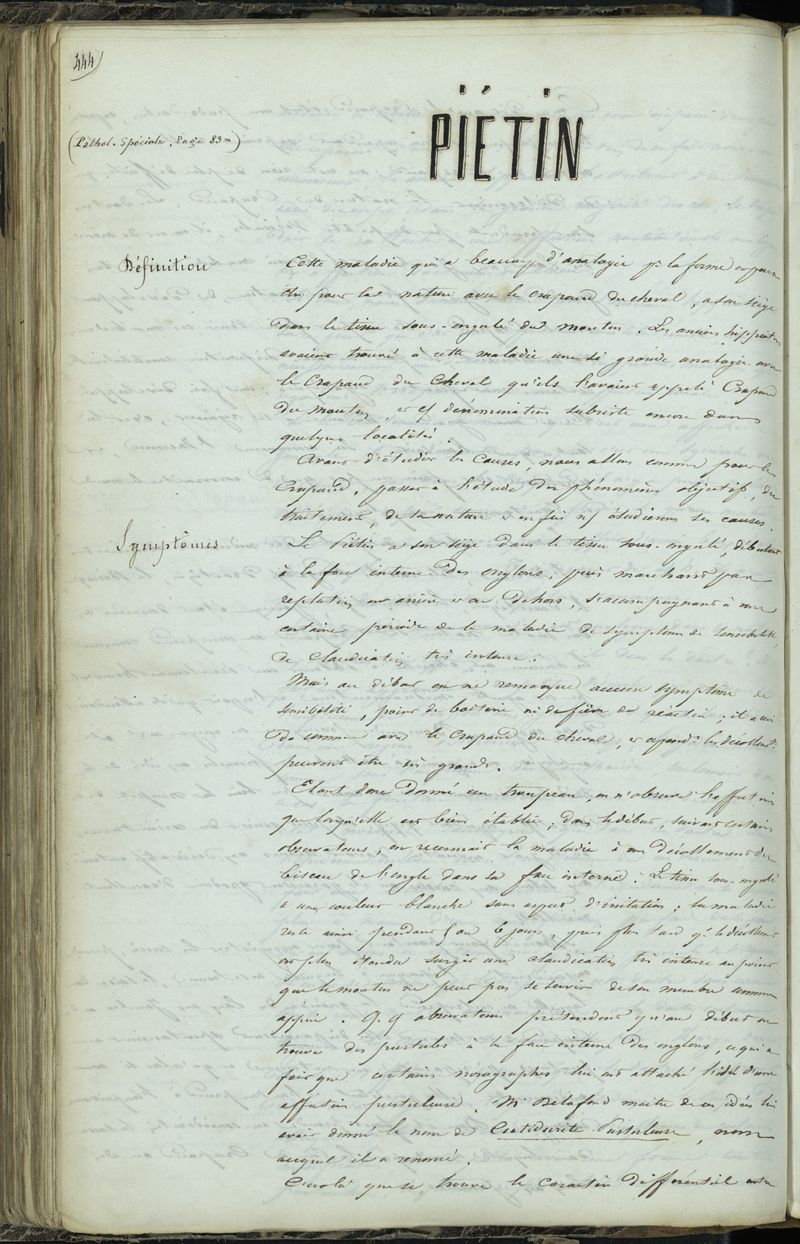 444
(Pathol. Spéciale, Page 83 )
PIÉTIN
Définition
Cette maladie qui a beaucoup d'analogie pr la forme
que pour la nature avec le crapaud du cheval, a son siège
dans le tissu sous-ongulé du mouton. Les anciens hippiatres
avaient trouvé à cette maladie une si grande analogie avec
le Crapaud du Cheval qu'ils l'avaient appelé Crapaud
du mouton, et cf dénomination subsiste encore dans
quelques localités.
Avant d'étudier les causes, nous allons comme pour le
Crapaud, passer à l'étude des phénomènes objectifs, du
traitement, de sa nature et enfin ns étudierons ses causes.
Symptômes
Le Piétin a son siège dans le tissu sous-ongulé, débutant
à la face interne des onglons, puis marchant par
reptation en arrière et en dehors, s'accompagnant à une
certaine période de la maladie de symptômes de sensibilité,
de claudication très intense.
Mais au début on ne remarque aucun symptôme de
sensibilité, point de boiterie ni de fièvre de réaction ; il en est
de comme avec le Crapaud du cheval, et cepend. les décollemts
peuvent être très grands.
Etant donc donné un troupeau, on n'observe l'affection
que lorsqu'elle est bien établie ; dans le début, suivant certains
observateurs, on reconnait la maladie à un décollement du
biseau de l'ongle dans sa face interne. Le tissu sous-ongulé
a une couleur blanche sans aspect d'irritation ; la maladie
reste ainsi pendant 5 ou 6 jours, puis plus tard qd le décollement
est plus étendu surgit une claudication très intense au point
que le mouton ne peut pas se servir de son membre comme
appui. Q.q observateurs prétendent qu'au début on
trouve des pustules à la face interne des onglons, ce qui a
fait que certains nosographes lui ont attaché l'idée d'une
affection pustuleuse. Mr Delafond imitre de ces idées lui
avait donné le nom de Cutidurite Pustuleuse, nom
auquel il a renoncé.
C'est là que se trouve le caractère différentiel entre